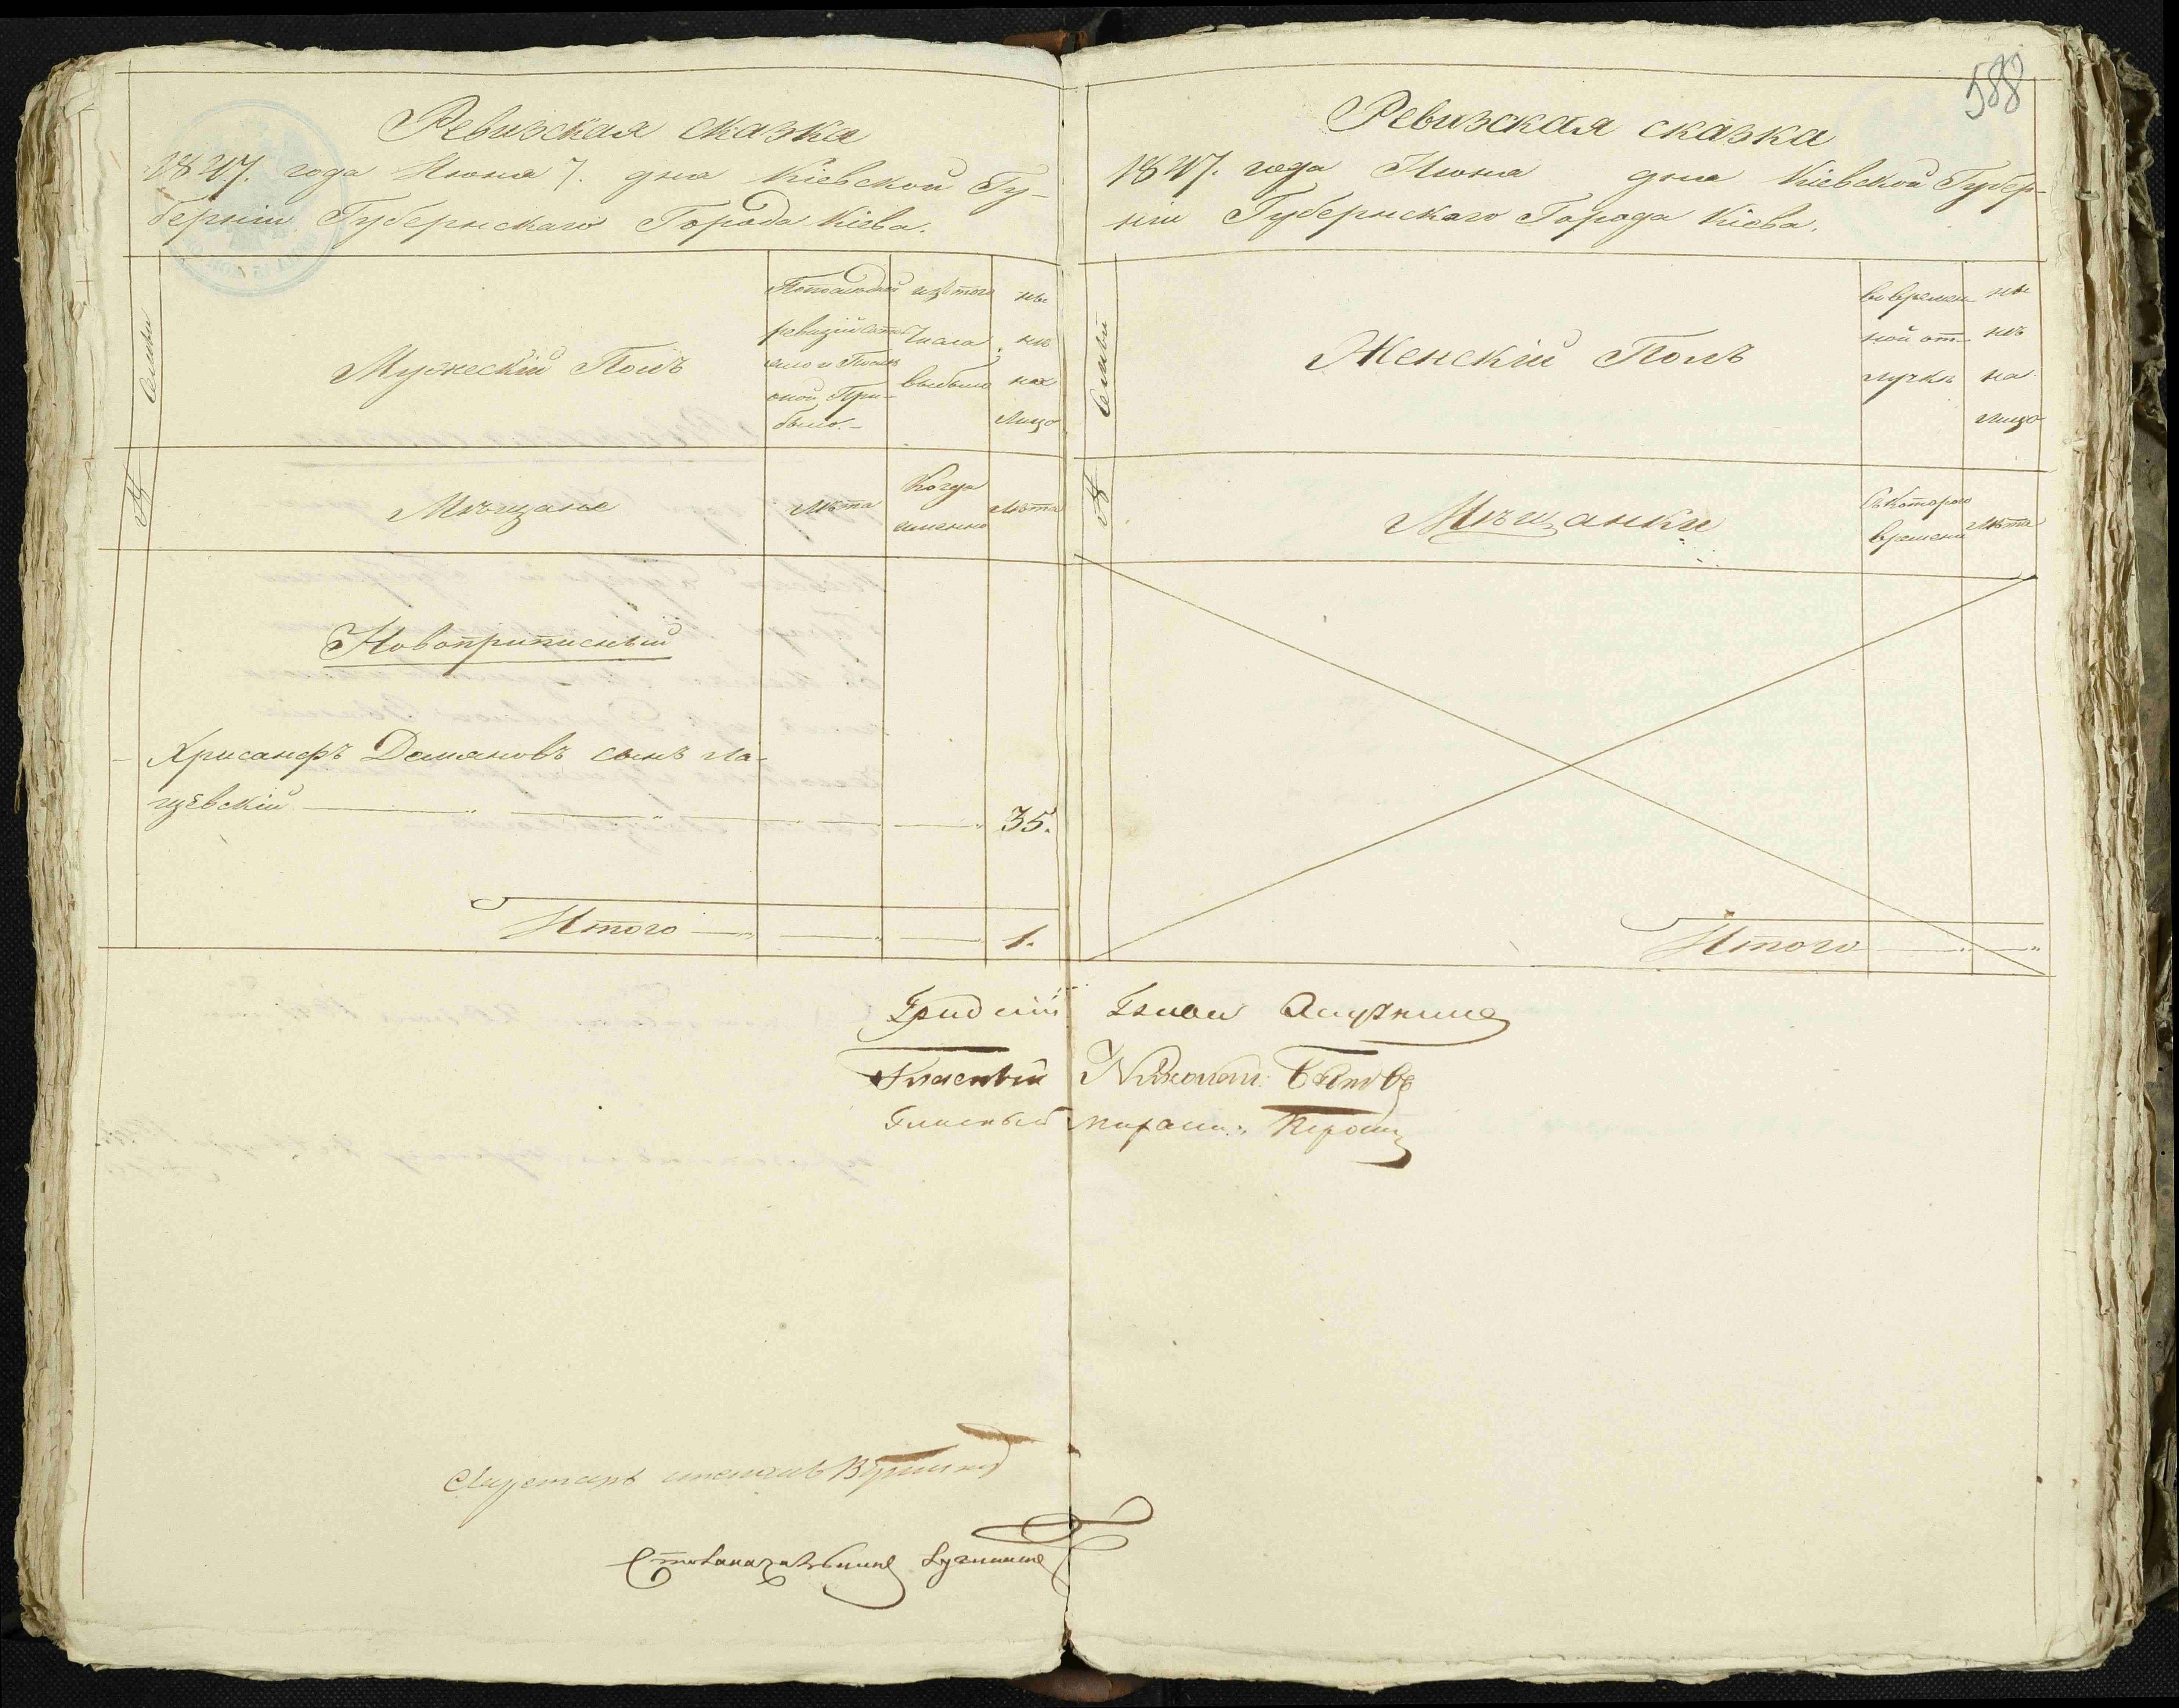 Ревизская сказка
1847. года Июня 7. дня Кіевской Гу-
берніи Губернскаго Города Кіева.
Семьи
Мужескій Полъ
По последней
ревизіи состо
яло и После
оной При-
было.
изъ того
Числа
выбыло
ны
не
на
Лицо
№
Мѣщане
Лѣта
Когда
именно
Лѣта
Новоприписный
Хрисанфъ Демяновъ сынъ Ла-
гуевскій 35.
Итого 1.
588
Ревизская сказка
1847. года Июня дня Кіевской Губер-
ніи Губернскаго Города Кіева.
Семьи
Женскій Полъ
во времен
ной от-
лучкѣ
ны
нѣ
на
лицо
№
Мѣщанки
Съ Котораго
времени
Лѣта
Итого
Градскій Глава
Гласный Николай
Гласный
Секретарь
Столоначальникъ